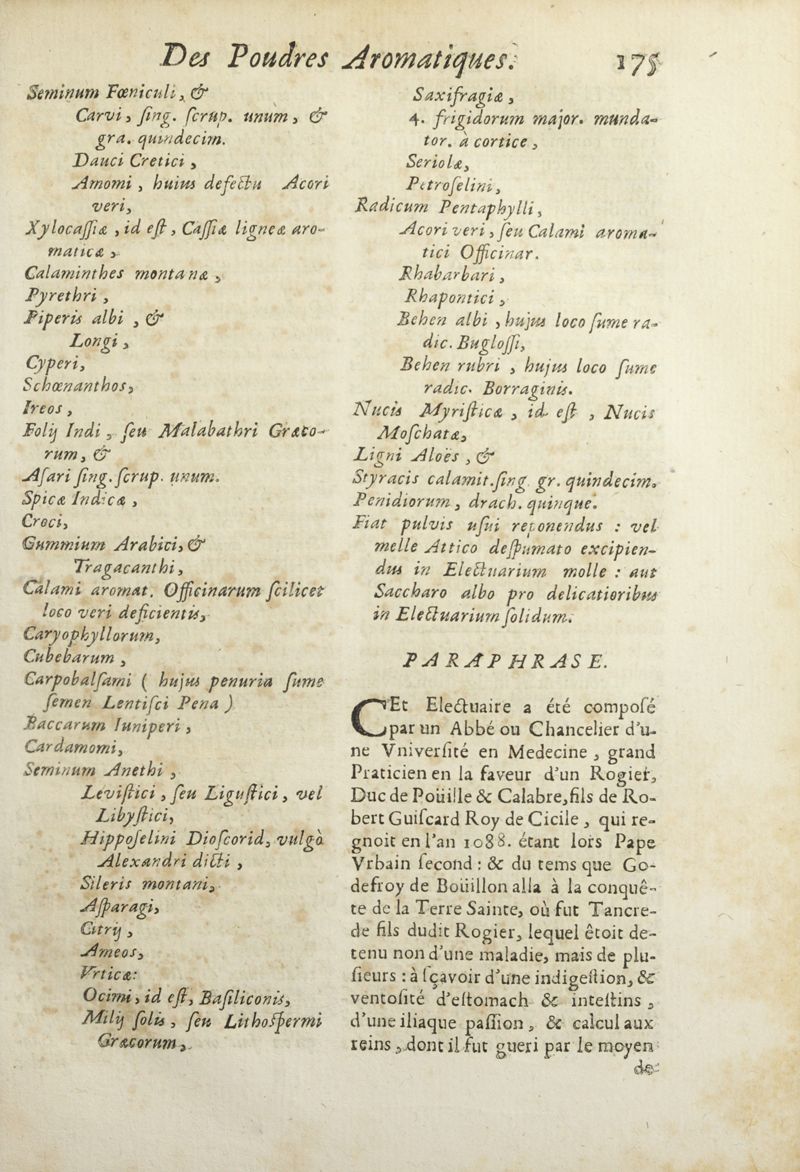 Des Poudres Aromatiques. 175
Seminum Fœniculi, &
Carvi, ſing. ſcrup. unum, &
gra. quindecim.
Dauci Cretici,
Amomi, huius defectu Acori
veri,
Xylocaſſiæ, id eſt, Caſſiæ ligneæ aro-
maticæ,
Calaminthes montanæ,
Pyrethri,
Piperis albi, &
Longi,
Cyperi,
Schœnanthos,
Ireos,
Folij Indi, ſeu Malabathri Græco-
rum, &
Aſari ſing. ſcrup. unum.
Spicæ Indicæ,
Croci,
Gummium Arabici, &
Tragacanthi,
Calami aromat. Officinarum ſcilicet
loco veri deficientis,
Caryophyllorum,
Cubebarum,
Carpobalſami ( hujus penuria ſume
ſemen Lentiſci Pena )
Baccarum Iuniperi,
Cardamomi,
Seminum Anethi,
Leviſtici, ſeu Liguſtici, vel
Libyſtici,
Hippoſelini Dioſcorid, vulgò
Alexandri dicti,
Sileris montani,
Aſparagi,
Citrij,
Ameos,
Vrticæ:
Ocimi, id eſt, Baſiliconis,
Milij ſolis, ſeu Lithoſpermi
Græcorum,
Saxifragiæ,
4. frigidorum major. munda-
tor. à cortice,
Seriolæ,
Petroſelini,
Radicum Pentaphylli,
Acori veri, ſeu Calami aroma-
tici Officinar.
Rhabarbari,
Rhapontici,
Behen albi, hujus loco ſume ra-
dic. Bugloſſi,
Behen rubri, hujus loco ſume
radic. Borraginis.
Nucis Myriſticæ, id eſt, Nucis
Moſchatæ,
Ligni Aloës, &
Styracis calamit. ſing. gr. quindecim.
Penidiorum, drach. quinque.
Fiat pulvis uſui reponendus : vel
melle Attico deſpumato excipien-
dus in Electuarium molle : aut
Saccharo albo pro delicatioribus
in Electuarium ſolidum.
PARAPHRASE.
CEt Electuaire a été compoſé
par un Abbé ou Chancelier d'u-
ne Vniverſité en Medecine, grand
Praticien en la faveur d'un Rogier,
Duc de Poüille & Calabre, fils de Ro-
bert Guiſcard Roy de Cicile, qui re-
gnoit en l'an 1088. étant lors Pape
Vrbain ſecond : & du tems que Go-
defroy de Boüillon alla à la conquê-
te de la Terre Sainte, où fut Tancre-
de fils dudit Rogier, lequel êtoit de-
tenu non d'une maladie, mais de plu-
ſieurs : à ſçavoir d'une indigeſtion, &
ventoſité d'eſtomach & inteſtins,
d'une iliaque paſſion, & calcul aux
reins, dont il fut gueri par le moyen
de